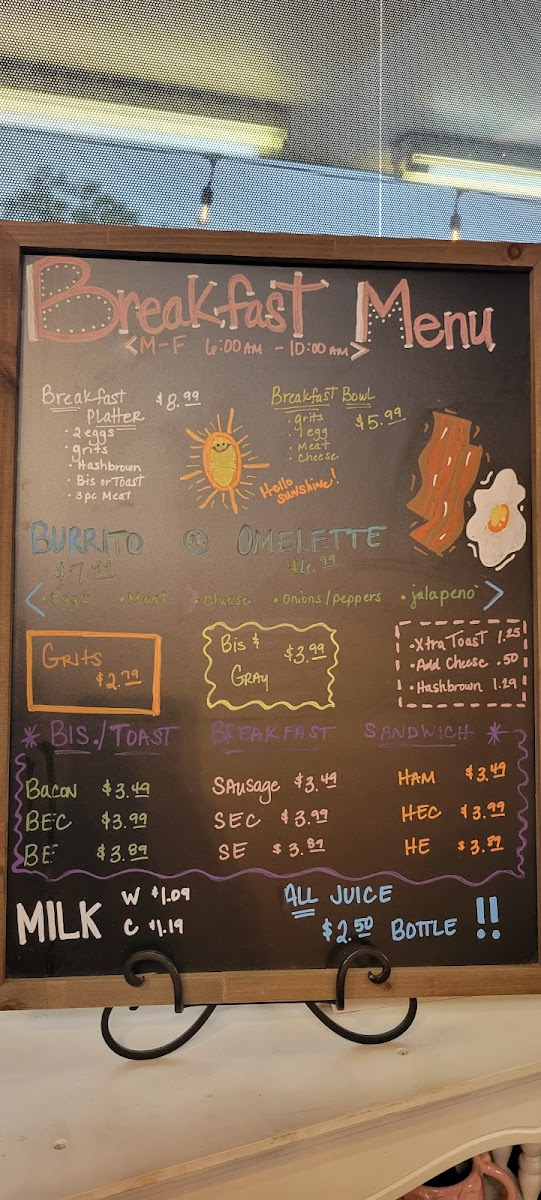 Breakfast Menu
<M-F 6:00 AM - 10:00 AM>
Breakfast Platter $8.99
• 2 eggs
• grits
• Hashbrown
• Bis or Toast
• 3 pc Meat
Breakfast Bowl $5.99
• grits
• 1 egg
• Meat
• Cheese
Hello Sunshine!
BURRITO OMELETTE
$7.99
< • Eggs • Meat • Cheese • Onions/peppers • jalapeno >
GRITS
$2.79
Bis & $3.99
GRAY
• Xtra Toast 1.25
• Add Cheese .50
• Hashbrown 1.29
* BIS./TOAST BREAKFAST SANDWICH *
BACON $3.49
BEC $3.99
BE $3.89
SAusage $3.49
SEC $3.99
SE $3.89
HAM $3.49
HEC $3.99
HE $3.89
MILK
W $1.09
C $1.19
ALL JUICE
$2.50 BOTTLE !!